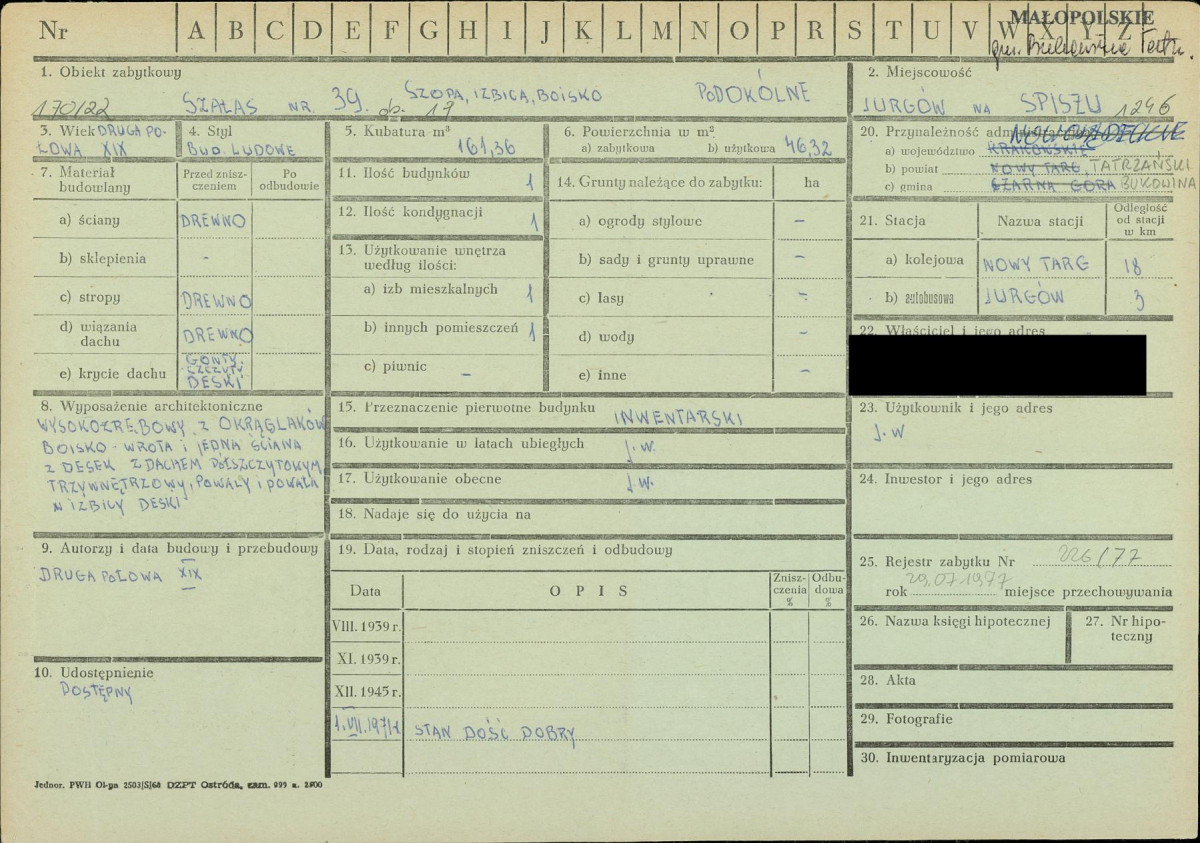 Nr A B C D E F G H I J K L M N O P R S T U V W X Y Z
MAŁOPOLSKIE
gm. Bukowina Tatrz.
1. Obiekt zabytkowy
170/22 SZAŁAS NR. 39. SZOPA, IZBICA, BOISKO PODOKÓLNE
dz. 17
2. Miejscowość
JURGÓW NA SPISZU 1246
3. Wiek DRUGA PO-
ŁOWA XIX
4. Styl
BUD. LUDOWE
5. Kubatura m³
161,36
6. Powierzchnia w m²
a) zabytkowa b) użytkowa 46,32
7. Materiał
budowlany
Przed znisz-
czeniem
Po
odbudowie
a) ściany DREWNO
b) sklepienia -
c) stropy DREWNO
d) wiązania
dachu DREWNO
e) krycie dachu GONTY,
SZCZYTY
DESKI
8. Wyposażenie architektoniczne
WYSOKOZRĘBOWY, Z OKRĄGLAKÓW
BOISKO - WROTA I JEDNA ŚCIANA
Z DESEK Z DACHEM PÓŁSZCZYTOWYM,
TRZYWNĘTRZOWY, POWAŁY I POWAŁA
W IZBICY DESKI
9. Autorzy i data budowy i przebudowy
DRUGA POŁOWA XIX
10. Udostępnienie
DOSTĘPNY
11. Ilość budynków 1
12. Ilość kondygnacji 1
13. Użytkowanie wnętrza
według ilości:
a) izb mieszkalnych 1
b) innych pomieszczeń 1
c) piwnic -
14. Grunty należące do zabytku: ha
a) ogrody stylowe -
b) sady i grunty uprawne -
c) lasy -
d) wody -
e) inne -
15. Przeznaczenie pierwotne budynku INWENTARSKI
16. Użytkowanie w latach ubiegłych J. W.
17. Użytkowanie obecne J. W.
18. Nadaje się do użycia na
19. Data, rodzaj i stopień zniszczeń i odbudowy
Data O P I S Znisz-
czenia
% Odbu-
dowa
%
VIII. 1939 r.
XI. 1939 r.
XII. 1945 r.
1.VII.1971r STAN DOŚĆ DOBRY
20. Przynależność
NOWOSĄDECKIE
a) województwo KRAKOWSKIE
b) powiat NOWY TARG, TATRZAŃSKI
c) gmina CZARNA GÓRA BUKOWINA
21. Stacja Nazwa stacji Odległość
od stacji
w km
a) kolejowa NOWY TARG 18
b) autobusowa JURGÓW 3
22. Właściciel i jego adres
23. Użytkownik i jego adres
J. W
24. Inwestor i jego adres
25. Rejestr zabytku Nr 226/77
rok 29.07.1977 miejsce przechowywania
26. Nazwa księgi hipotecznej
27. Nr hipo-
teczny
28. Akta
29. Fotografie
30. Inwentaryzacja pomiarowa
Jednor. PWH Ol-yn 2503/S/68 DZPT Ostróda, zam. 995 n. 2500